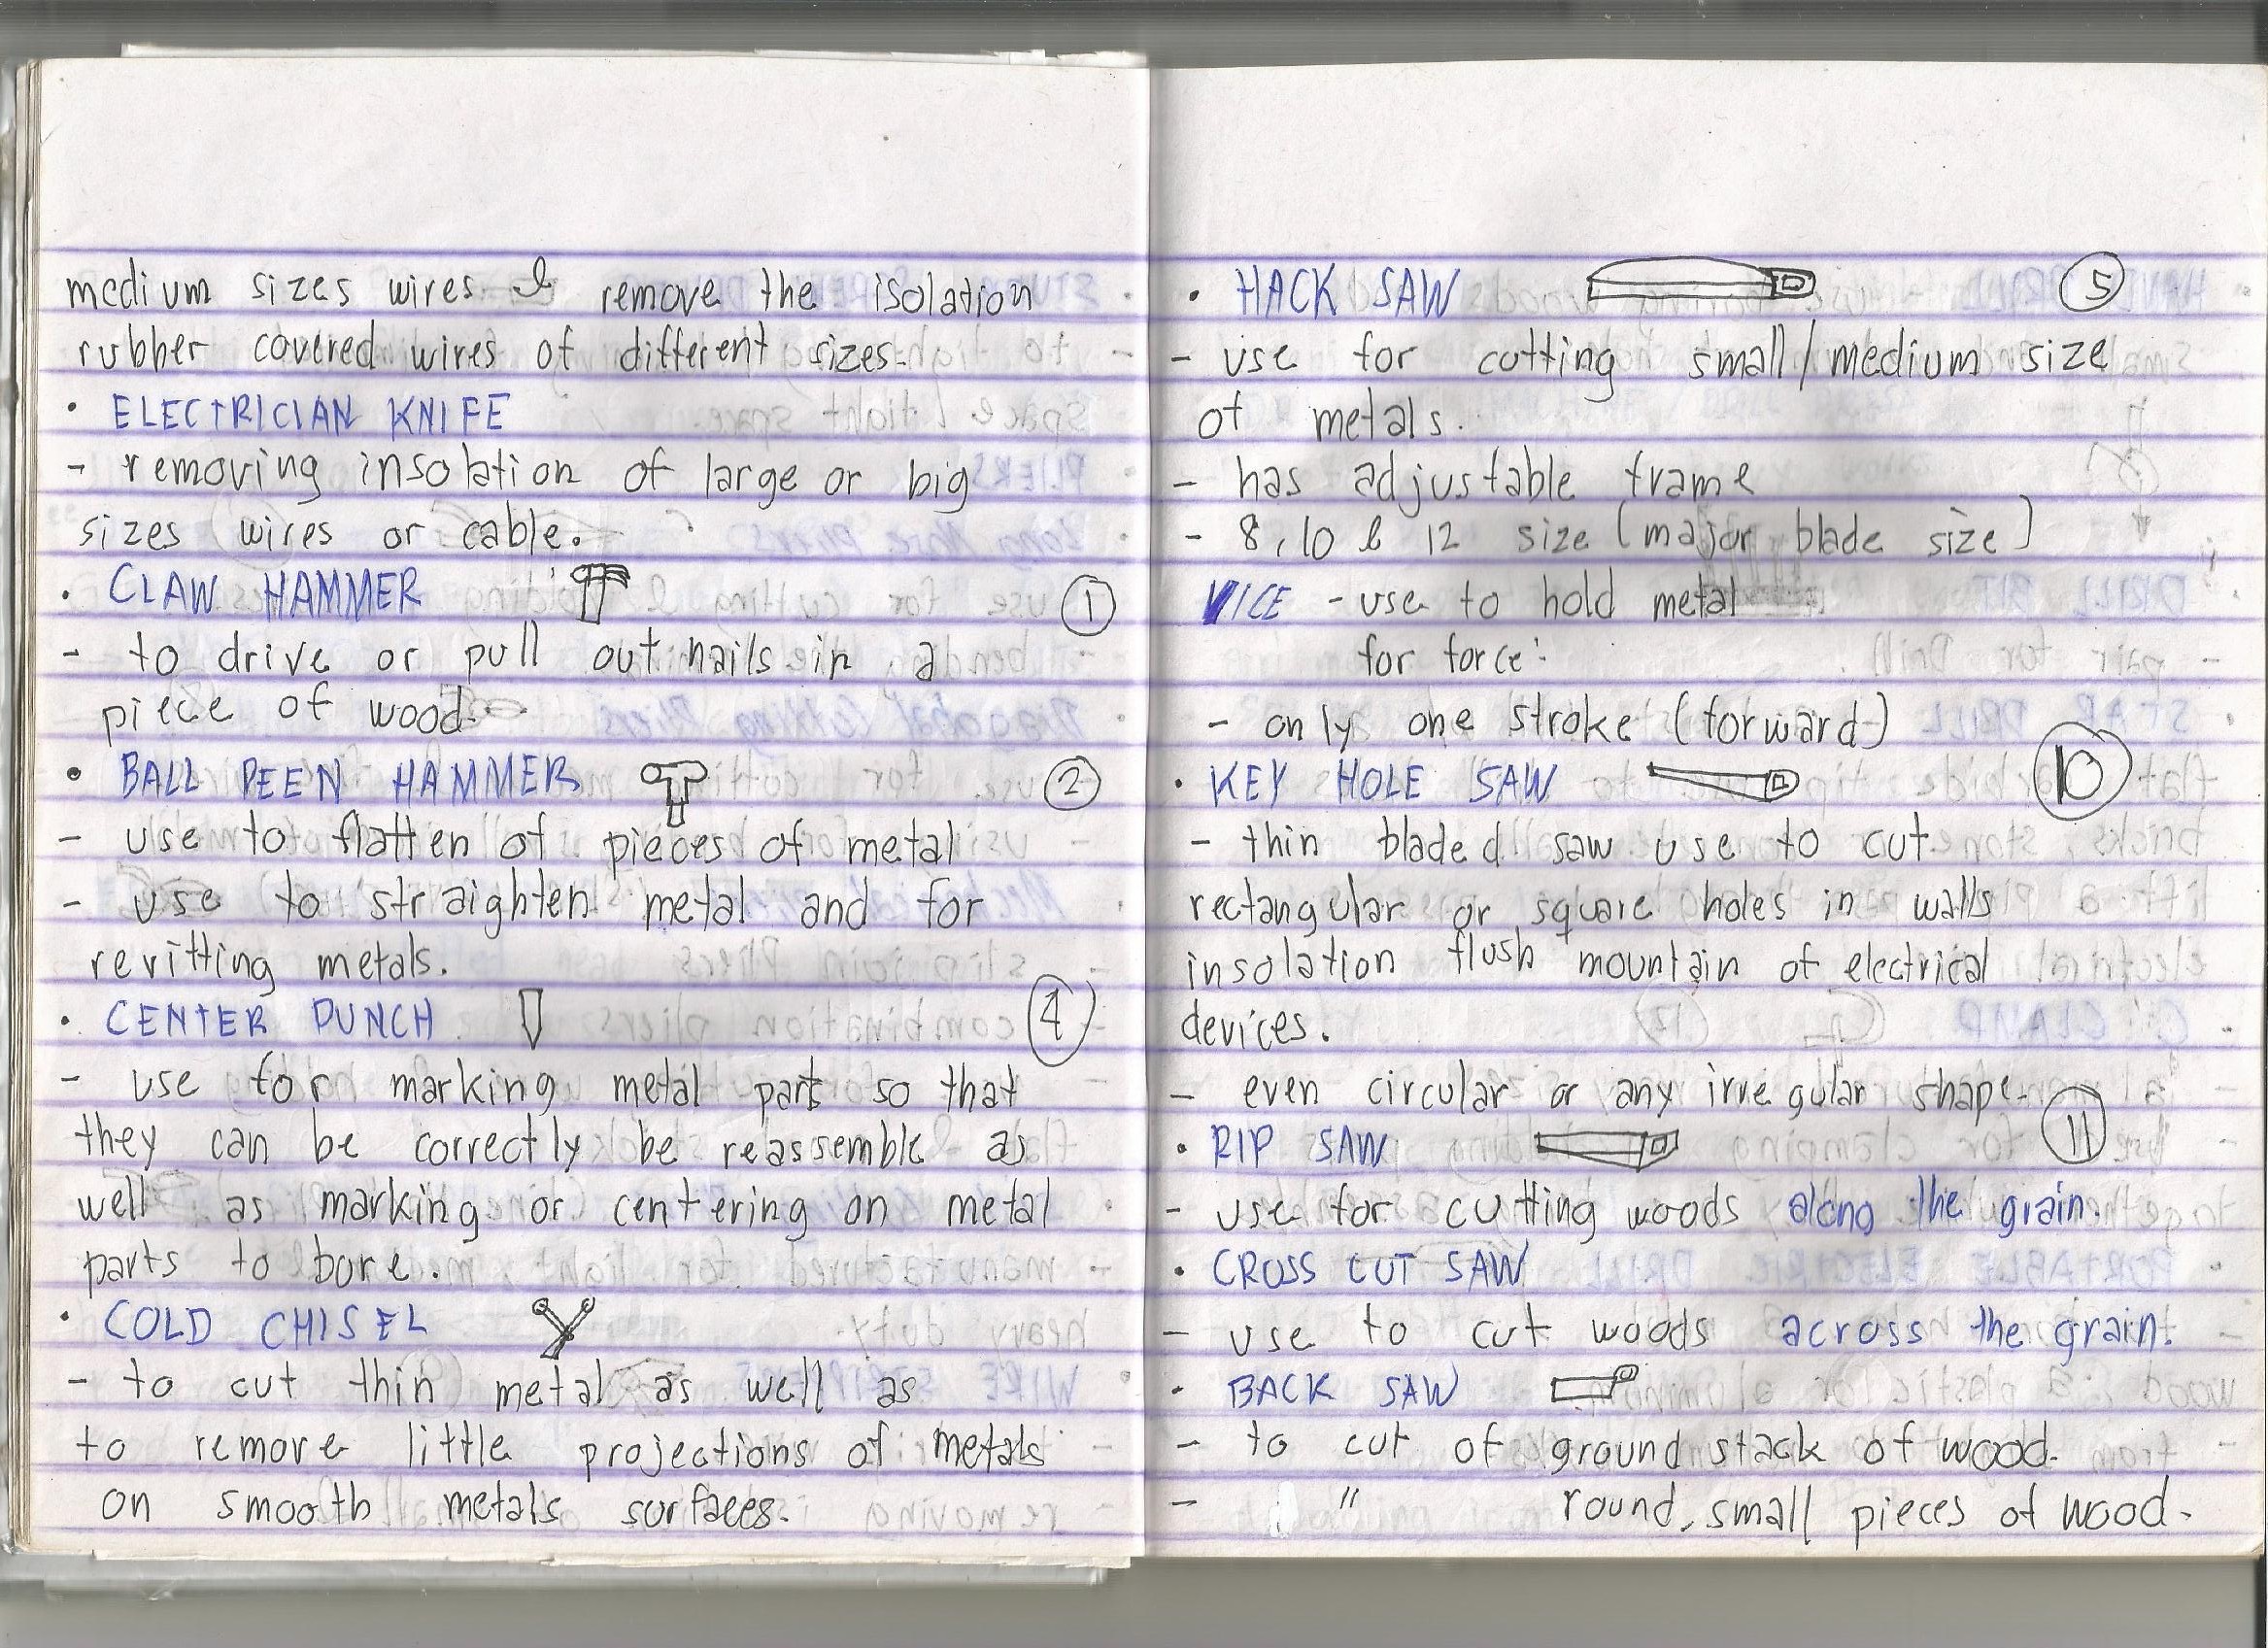 medium sizes wires & remove the isolation
rubber covered wires of different sizes.
• ELECTRICIAN KNIFE
- removing insolation of large or big
sizes wires or cable.
• CLAW HAMMER ①
- to drive or pull out nails in a
piece of wood.
• BALL PEEN HAMMER ②
- use to flatten of pieces of metal
- use to straighten metal and for
revitting metals.
• CENTER PUNCH ④
- use for marking metal parts so that
they can be correctly be reassemble as
well as marking or centering on metal
parts to bore.
• COLD CHISEL
- to cut thin metal as well as
to remove little projections of metals
on smooth metals surfaces.
• HACK SAW ⑤
- use for cutting small/medium size
of metals.
- has adjustable frame
- 8, 10 & 12 size (major blade size)
VICE - use to hold metal
for force.
- only one stroke (forward)
• KEY HOLE SAW ⑩
- thin bladed saw use to cut
rectangular or square holes in walls
insolation flush mountain of electrical
devices.
- even circular or any irregular shape.
• RIP SAW ⑪
- use for cutting woods along the grain.
• CROSS CUT SAW
- use to cut woods across the grain.
• BACK SAW
- to cut of ground stack of wood.
- " round, small pieces of wood.